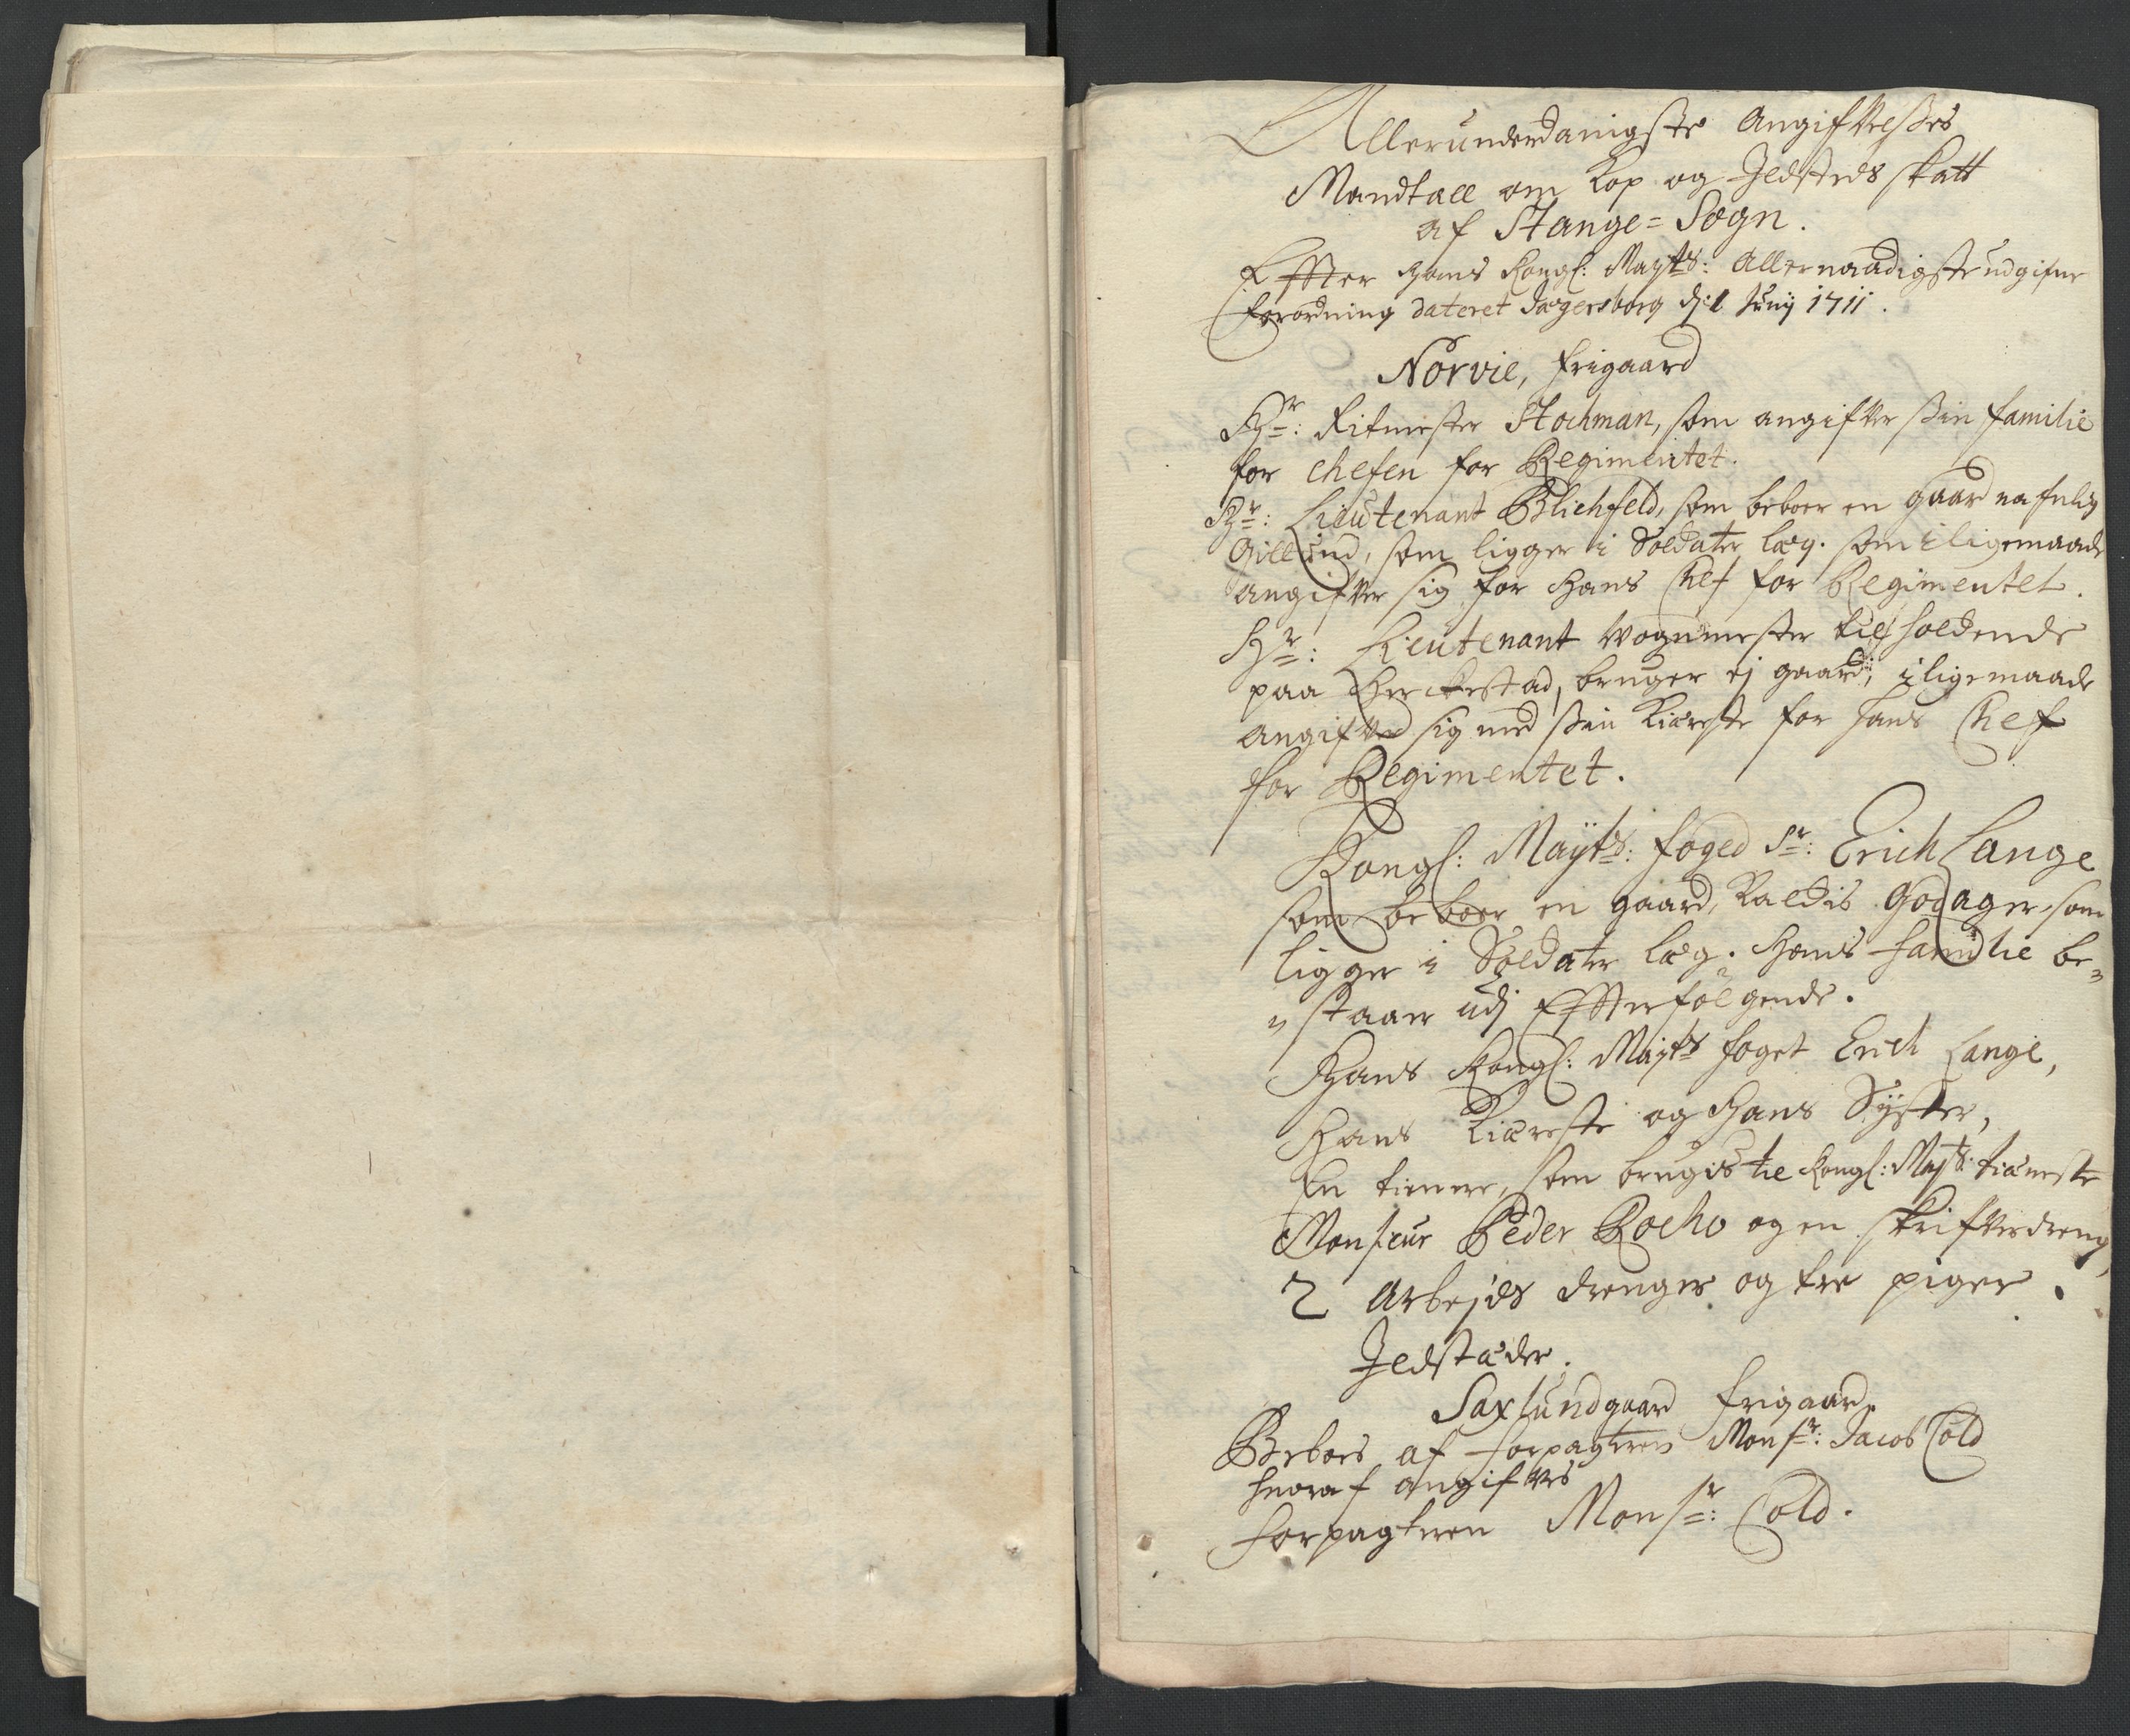 Allerunderdanigste Angifvelsses
Mandtall om Kop og Jldsteds skatt
af Stange=Sogn.
Effter Hans Kongl: Mayts: Allernaadigste udgifne
forordning dateret Jægersborg dj: 1 Junij 1711.
Norvie, frigaard
Hr: Ritmester Stochman, som angifver sin familie
for chefen for Regimentet.
Hr: Lieutenant Blichfeld, som beboer en gaard nafnlig
Gillund, som ligger i Soldater læg. som iligemaade
angifver sig for Hans Chef for Regimentet.
Hr: Lieutenant Wognmester tilholdende
paa Herckestad, bruger ej gaard, iligemaade
angifver sig med sin Kiæreste for hans Chef
for Regimentet.
Kongl: Mayts: foged Sr: Erich Lange
som beboer en gaard, Kaldis Godager, som
ligger i Soldater læg. Hans familie be=
=staar udj Effterfølgende.
Hans Kongl: Mayts foget Erich Lange,
Hans Kiæreste og Hans Syster,
En tienere, som brugis til Kongl: Mayts: tiæneste
Monsieur Peder Rocho og en skrifverdreng,
2 Arbejds drenger og tre piger.
Jldstæder.
Saxlundgaard frigaard.
Beboes af forpagteren Monsr: Jacob Cold
hvoraf angifves
forpagteren Monsr: Cold.